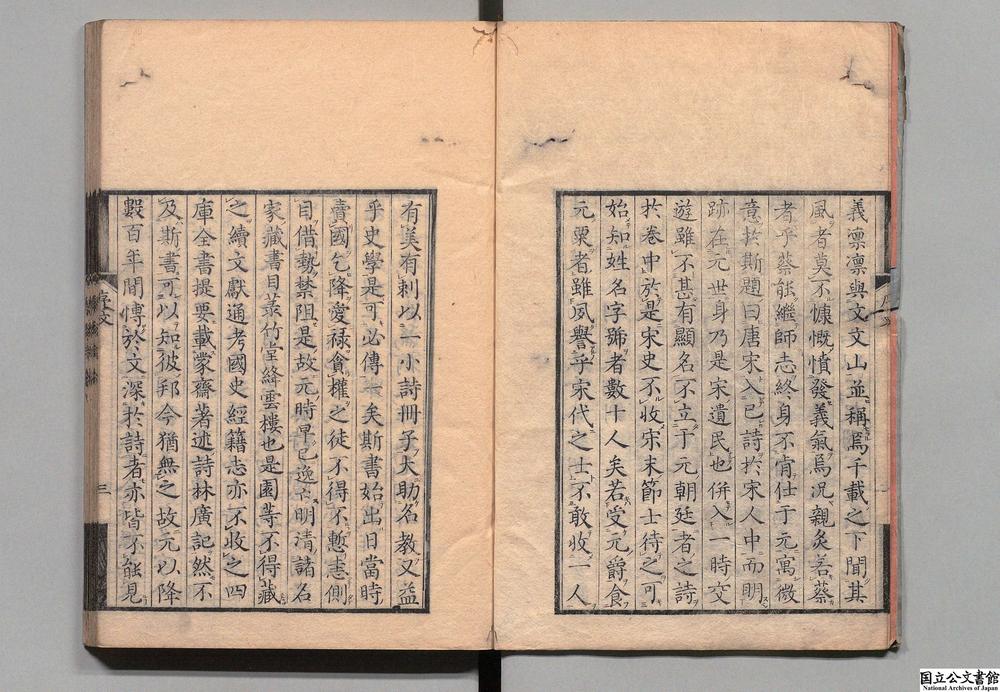 義凛凛與文文山並稱焉千載之下聞其
風者莫不慷慨憤發義氣焉況親炙若蔡
者乎蔡能繼師志終身不肯仕于元寓微
意於斯題曰唐宋入己詩於宋人中而明
跡在元世身乃是宋遺民也併入一時交
遊雖不甚有顯名不立于元朝廷者之詩
於卷中於是宋史不收宋末節士待之可
始知姓名字號者數十人矣若受元爵食
元粟者雖夙譽乎宋代之士不敢收一人
有美有刺以一小詩冊子大助名教又益
乎史學是可必傳矣斯書始出日當時
賣國乞降愛祿貪權之徒不得不慙恚側
目借勢禁阻是故元時早已逸亡明清諸名
家藏書目菉竹堂絳雲樓也是園等不得藏
之續文獻通考國史經籍志亦不收之四
庫全書提要載蒙齋著述詩林廣記然不
及斯書可以知彼邦今猶無之故元以降
數百年間博於文深於詩者亦皆不能見
序文
三
国立公文書館
National Archives of Japan